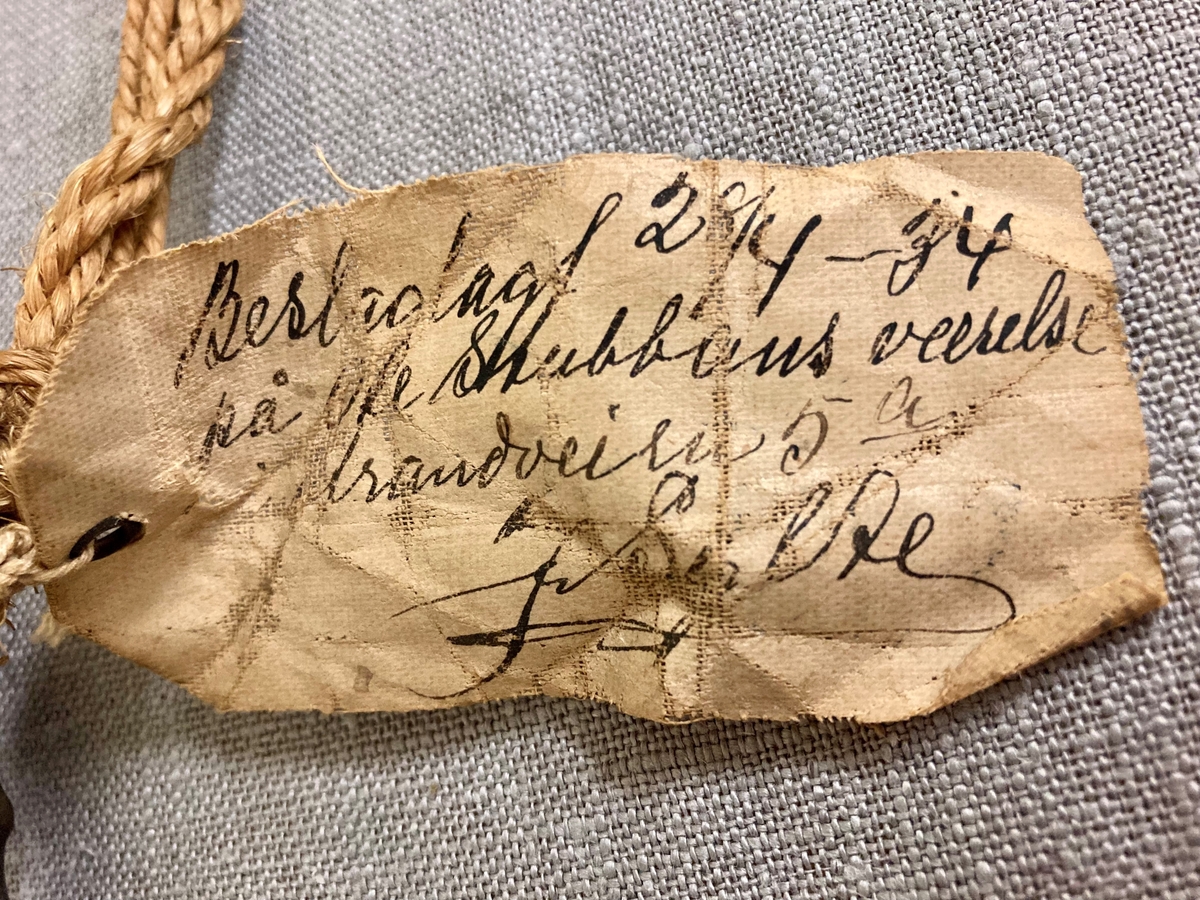 Beslaglagt 2⁹/4 – 34
på Ole Stubbans værelse
i Strandveien 5 a